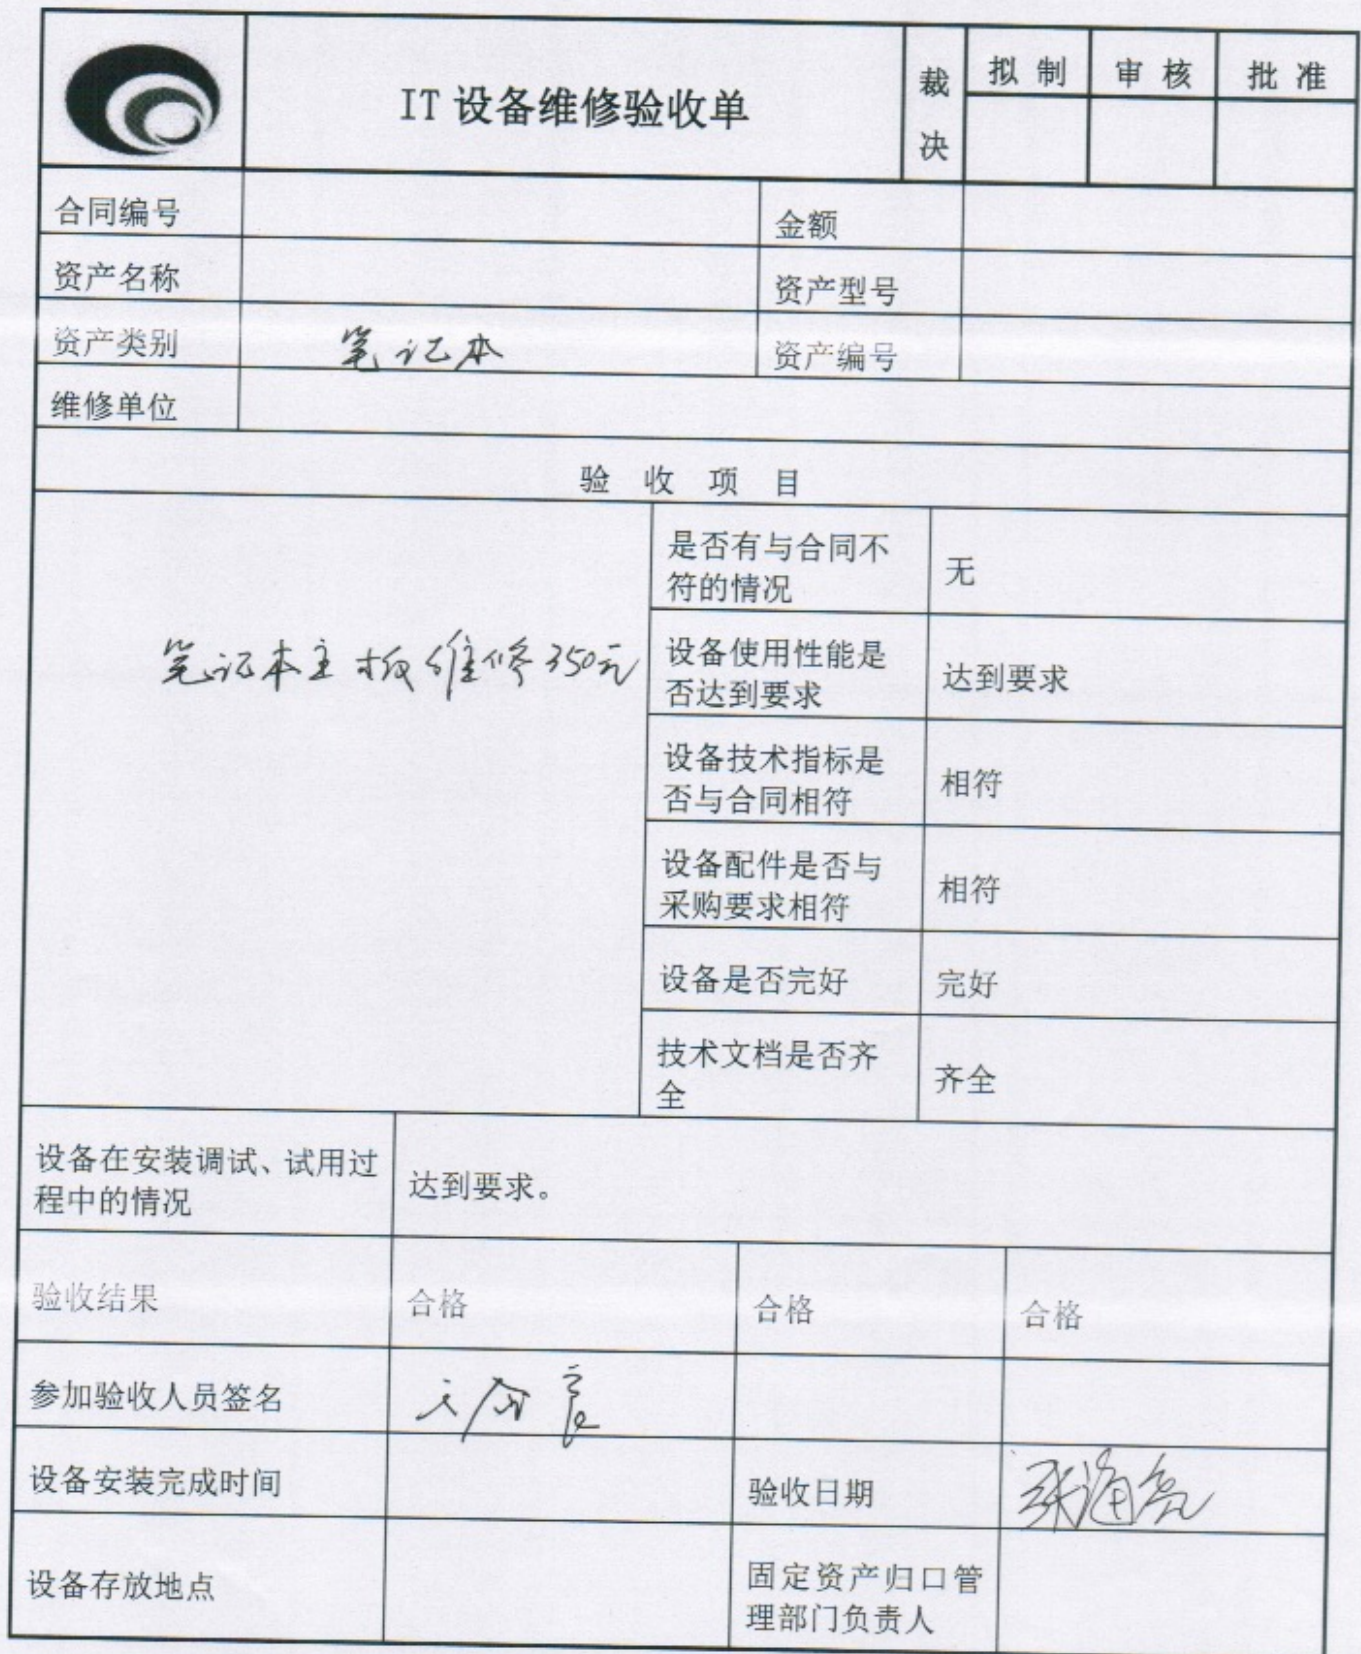 IT设备维修验收单
裁决
拟制
审核
批准
合同编号
金额
资产名称
资产型号
资产类别
笔记本
资产编号
维修单位
验收项目
笔记本主板维修350元
是否有与合同不
符的情况
无
设备使用性能是
否达到要求
达到要求
设备技术指标是
否与合同相符
相符
设备配件是否与
采购要求相符
相符
设备是否完好
完好
技术文档是否齐
全
齐全
设备在安装调试、试用过
程中的情况
达到要求。
验收结果
合格
合格
合格
参加验收人员签名
设备安装完成时间
验收日期
设备存放地点
固定资产归口管
理部门负责人